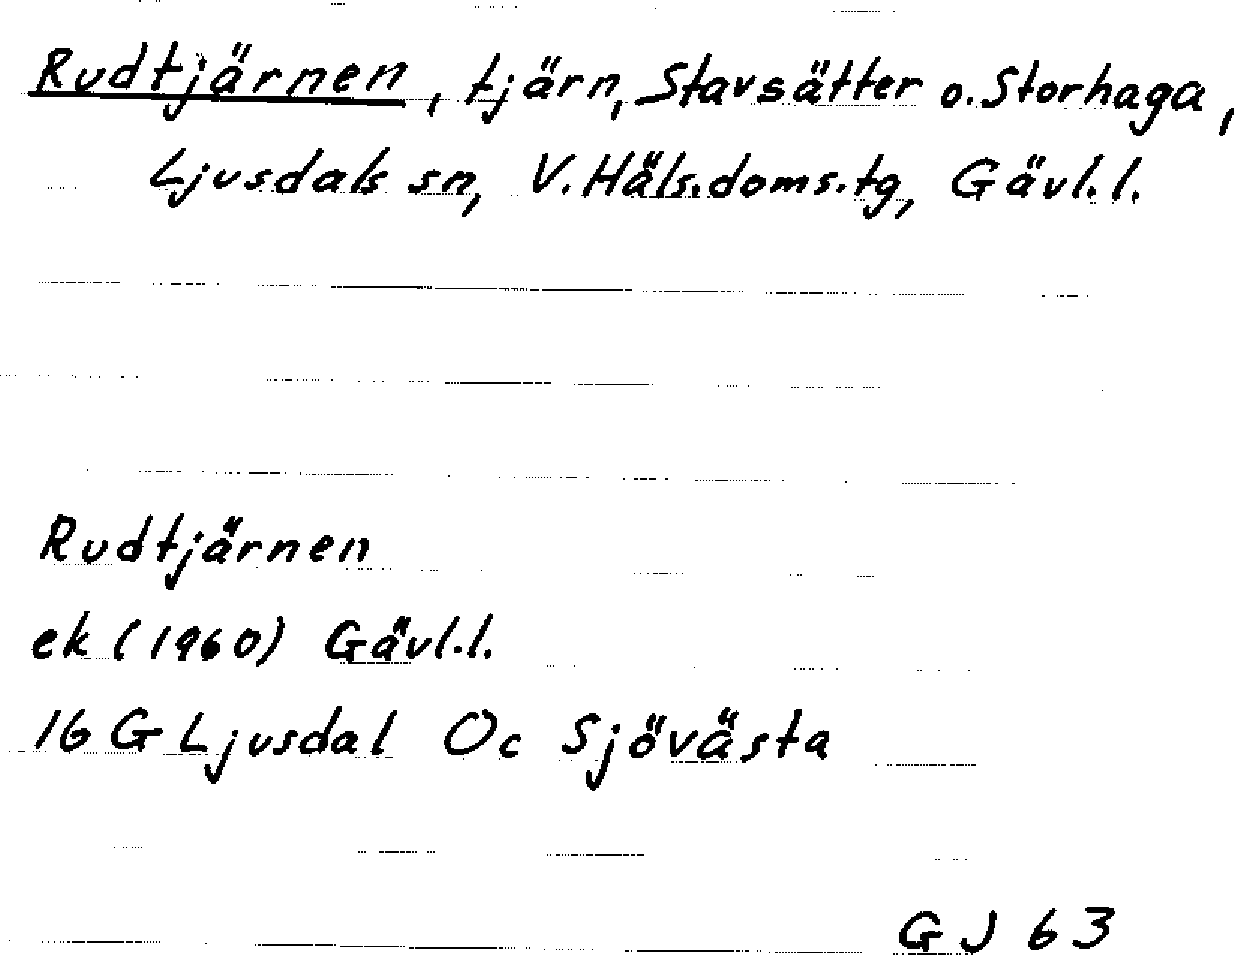 Rudtjärnen, tjärn, Stavsätter o. Storhaga,
Ljusdals sn, V. Häls. doms. tg, Gävl. l.
Rudtjärnen
ek (1960) Gävl. l.
16 G Ljusdal Oc Sjövästa
GJ 63